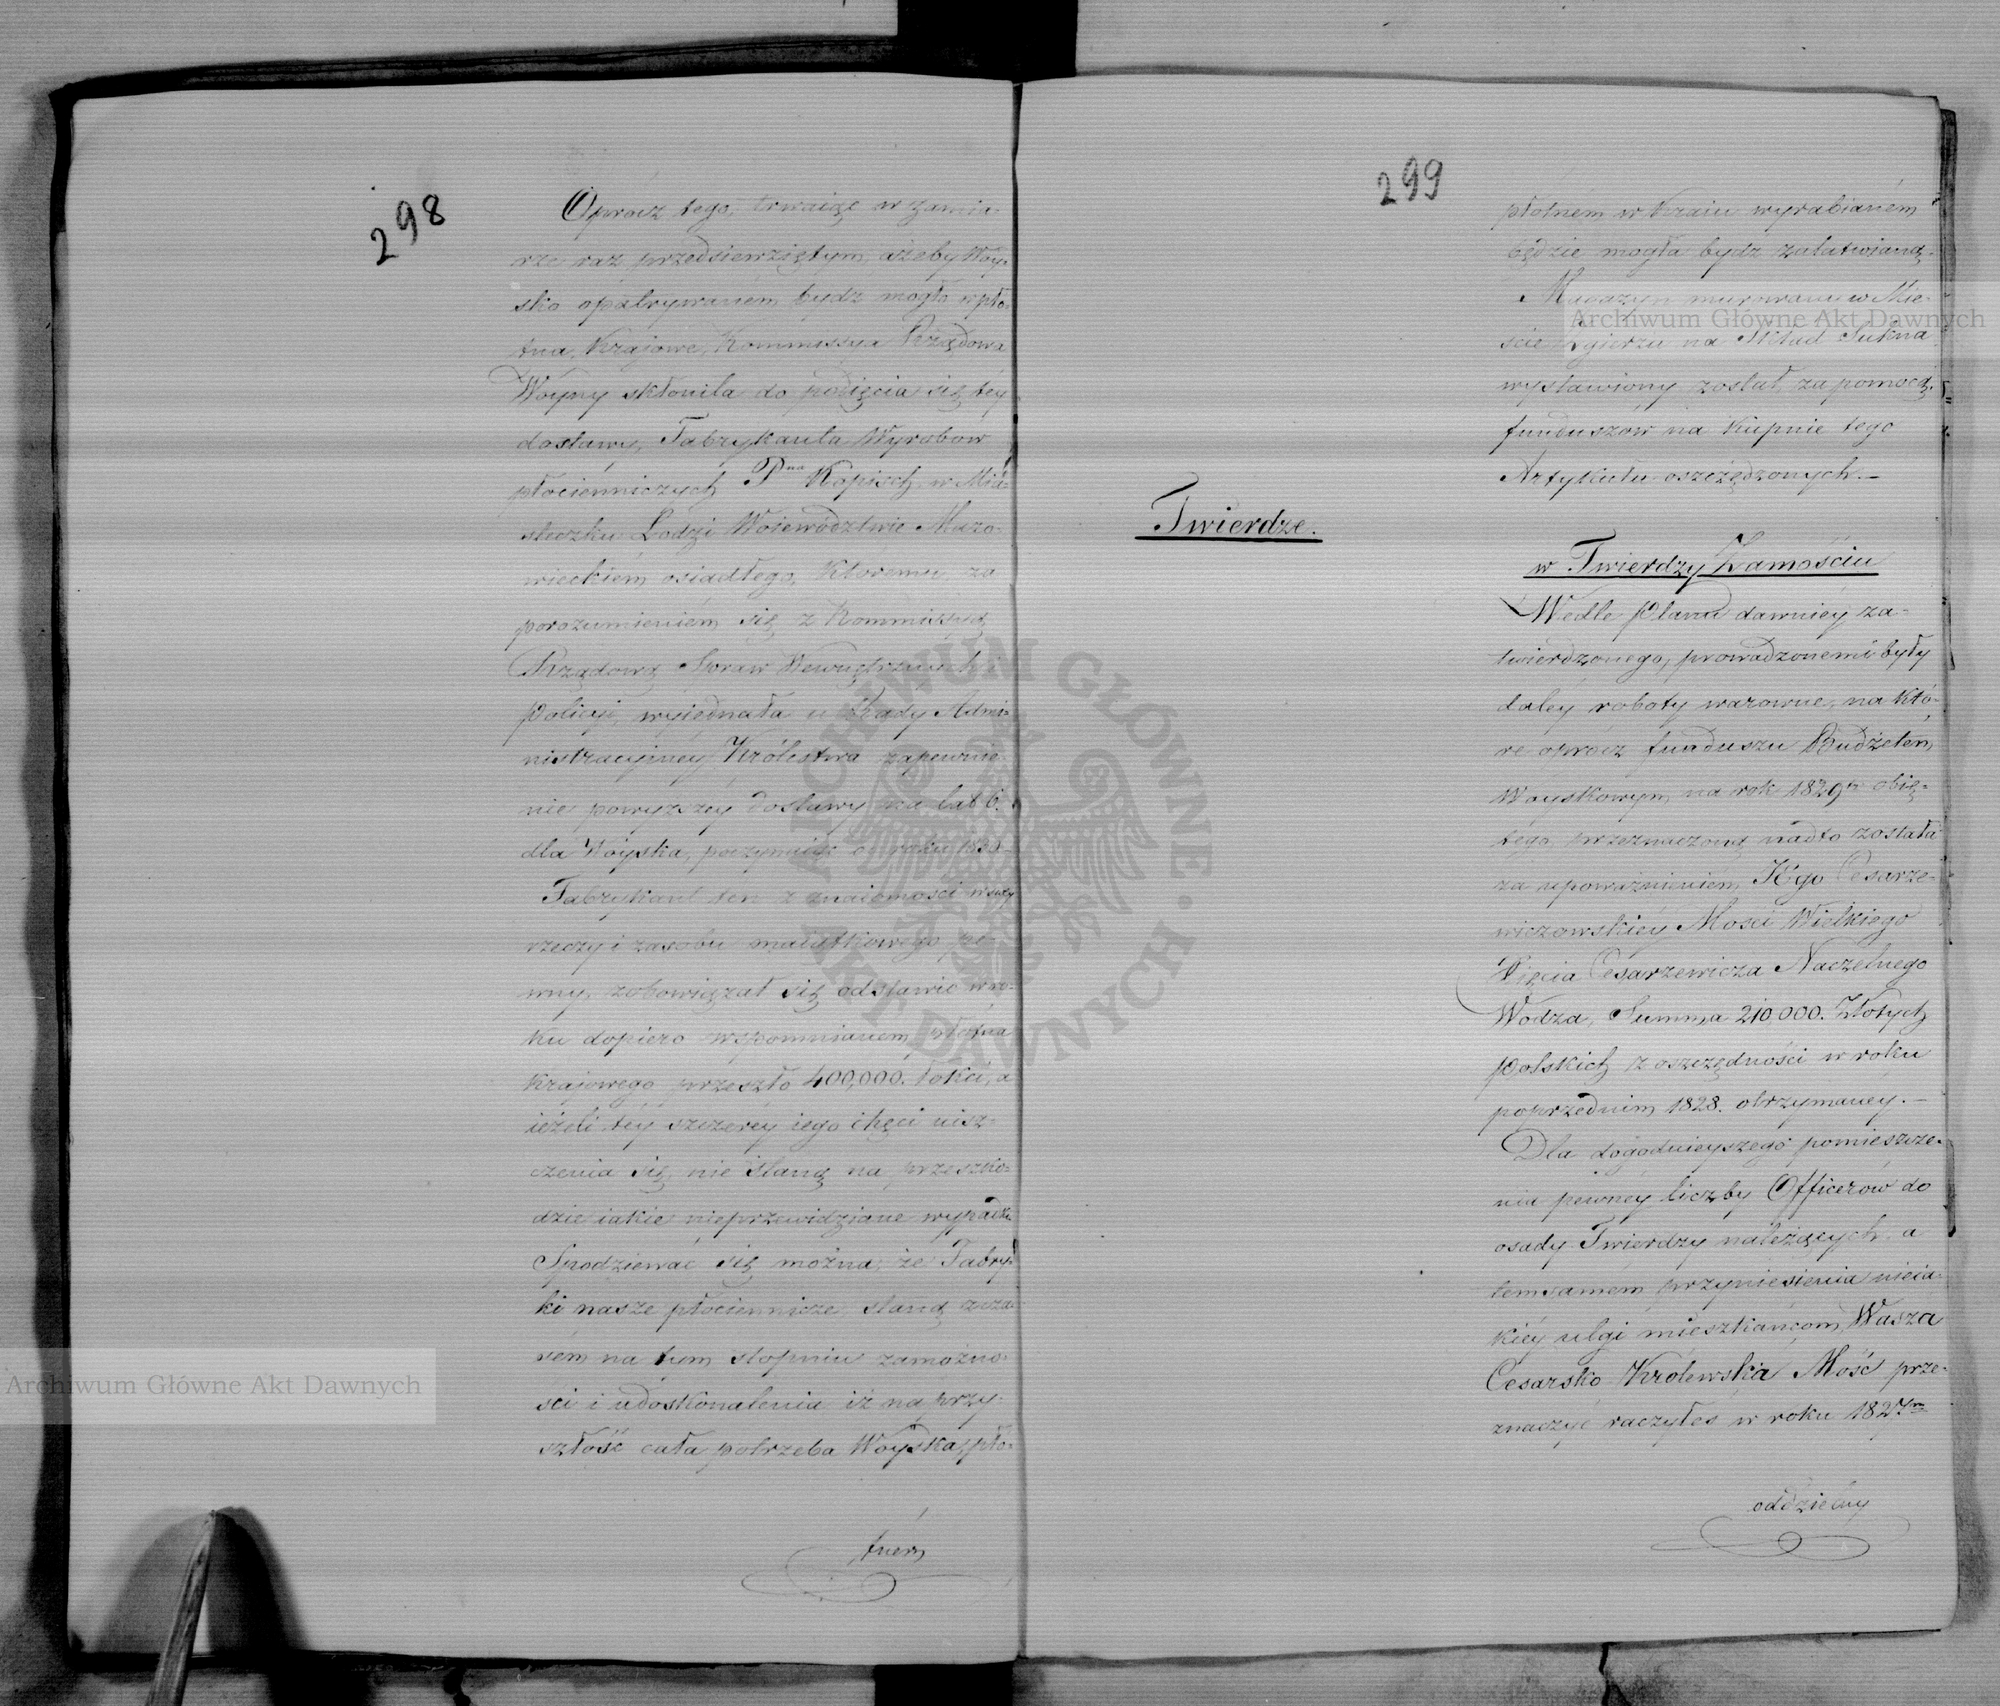 298
Oprócz tego, trwaiąc w zamia-
rze raz przedsiewziętym, ażeby Woy-
sko opatrywanem bydz mogło w płó-
tna Krajowe, Kommissya Rządowa
Woyny skłoniła do podięcia się tey
dostawy, Fabrykanta Wyrobow
płócienniczych Pna Kopisch, w Mia-
steczku Łodzi Woiewództwie Mazo-
wieckiem osiadłego, Ktoremu, za
porozumieniem się z Kommissyą
Rządową Spraw Wewnętrznych i
Policyi, wyiednała u Rady Admi-
nistracyiney Królestwa zapewnie-
nie powyższey dostawy na lat 6.
dla Woyska, poczynaiąc od roku 1830.
Fabrykant ten z znaiomości swey
rzeczy i zasobu maiątkowego pe-
wny, zobowiązał się odstawić w ro-
ku dopiero wspomnianem, płótna
Krajowego przeszło 400,000. łokci, a
ieżeli tey szczerey iego chęci uisz-
czenia się, nie staną na przeszko-
dzie iakie nieprzewidziane wypadki
Spodziewać się można, że Fabry-
ki nasze płóciennicze staną z cza-
sem na tym stopniu zamożno-
ści i udoskonalenia iż na przy-
szłość cała potrzeba Woyska, płó-
tnem
299
płotnem w Kraiu wyrabianém
będzie mogła bydz załatwianą.
Magazyn murowany w Mie-
ście Zgierzu na Skład Sukna
wystawiony został, za pomocą
funduszów na Kupnie tego
Artykułu oszczędzonych.—
Twierdze.
w Twierdzy Zamościu
Wedle planu dawniey za-
twierdzonego, prowadzonemi były
daley roboty warowne, na któ-
re oprocz funduszu Budżetem
Woyskowym na rok 1829ty obię-
tego, przeznaczoną nadto została
za upoważnieniem JKgo Cesarze-
wiczowskiéy Mości Wielkiego
Xięcia Cesarzewicza Naczelnego
Wodza, Summa 210,000. Złotych
Polskich z oszczędności w roku
poprzednim 1828. otrzymaney.—
Dla dogodnieyszego pomieszcze-
nia pewney liczby Officerów do
osady Twierdzy należących, a
temsamem przyniesienia nieia-
kiéy ulgi mieszkańcom, Wasza
Cesarsko Królewska Mość prze-
znaczyć raczyłeś w roku 1827ym
oddzielny
Archiwum Główne Akt Dawnych
Archiwum Główne Akt Dawnych
ARCHIWUM GŁÓWNE AKT DAWNYCH